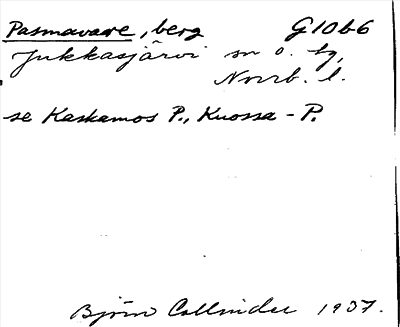 Pasmavare, berg G10b6
Jukkasjärvi sn o. tg,
Norrb. l.
se Kaskamos P., Kuossa - P.
Björn Collinder 1937.